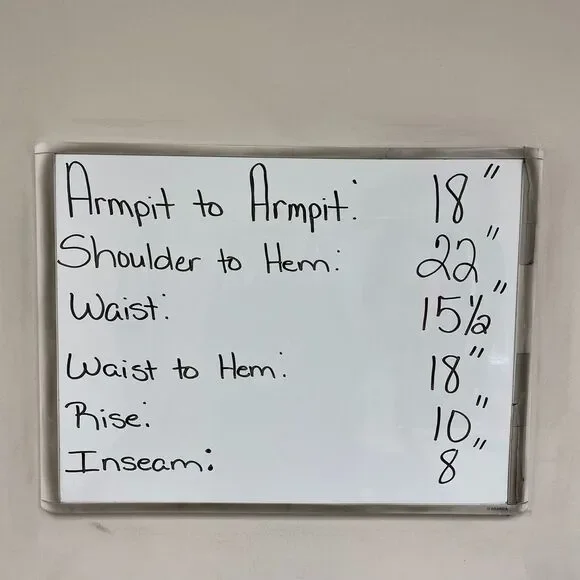 Armpit to Armpit: 18"
Shoulder to Hem: 22"
Waist: 15½"
Waist to Hem: 18"
Rise: 10"
Inseam: 8"